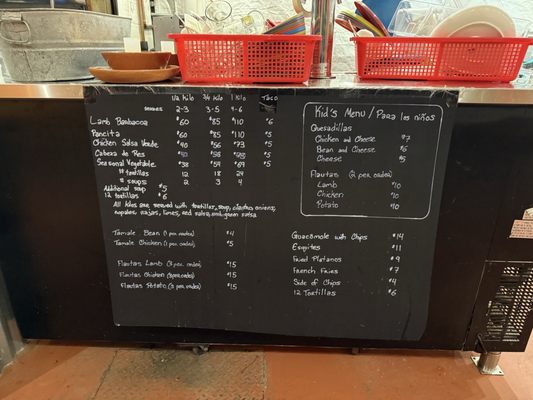 1/2 Kilo 3/4 Kilo 1 Kilo Taco
serves 2-3 3-5 4-6
Lamb Barbacoa $60 $85 $110 $6
Pancita $60 $85 $110 $5
Chicken Salsa Verde $40 $56 $73 $5
Cabeza de Res $5
Seasonal Vegetable $38 $54 $69 $5
# tortillas 12 18 24
# soups 2 3 4
Additional soup $5
12 tortillas $6
All kilos are served with tortillas, soup, cilantro, onions,
nopales, rajas, limes, and salsa
Tamale Bean (1 per order) $4
Tamale Chicken (1 per order) $5
Flautas Lamb (3 per order) $15
Flautas Chicken (3 per order) $15
Flautas Potato (3 per order) $15
Kid's Menu / Para los niños
Quesadillas
Chicken and Cheese $7
Bean and Cheese $6
Cheese $5
Flautas (2 per order)
Lamb $10
Chicken $10
Potato $10
Guacamole with Chips $14
Esquites $11
Fried Platanos $9
French Fries $7
Side of Chips $4
12 Tortillas $6